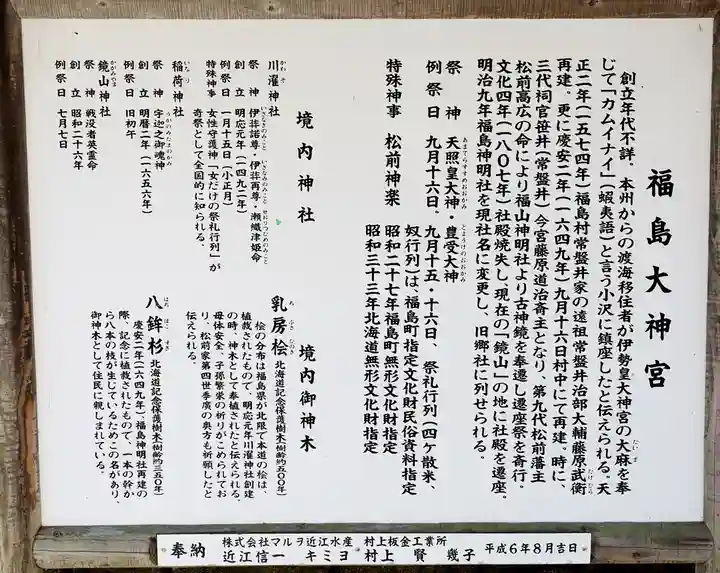 福島大神宮
創立年代不詳。本州からの渡海移住者が伊勢皇大神宮の大麻を奉
じて「カムイナイ」(蝦夷語)と言う小沢に鎮座したと伝えられる。天
正二年(一五七四年)福島村常盤井家の遠祖常盤井治部大輔藤原武衡
再建。更に慶安二年(一六四九年)九月十六日村中にて再建。時に、
三代祠官笹井(常盤井)今宮藤原道治斎主となり、第九代松前藩主
松前高広の命により福山神明社より古神鏡を奉遷し遷座祭を斎行。
文化四年(一八〇七年)社殿焼失し現在の「鏡山」の地に社殿を遷座。
明治九年福島神明社を現社名に変更し、旧郷社に列せられる。
祭神 天照皇大神・豊受大神
例祭日 九月十六日。九月十五・十六日、祭礼行列(四ケ散米、
奴行列)は、福島町指定文化財民俗資料指定
特殊神事 松前神楽 昭和二十七年福島町無形文化財指定
昭和三十三年北海道無形文化財指定
境内神社
川濯神社
祭神 伊弉諾尊・伊弉冉尊・瀬織津姫命
創立 明応元年(一四九二年)
例祭日 一月十五日(小正月)
特殊神事 女性守護神「女だけの祭礼行列」が
奇祭として全国的に知られる。
稲荷神社
祭神 宇迦之御魂神
創立 明暦二年(一六五六年)
例祭日 旧初午
鏡山神社
祭神 戦没者英霊命
創立 昭和二十六年
例祭日 七月七日
境内御神木
乳房桧 北海道記念保護樹木(樹齢約五〇〇年)
桧の分布は福島県が北限で本道の桧は、
植栽されたもので、明応元年川濯神社創建
の時、神木として奉植されたと伝えられる。
母体安全、子孫繁栄の祈りがこめられてお
り、松前家第四世季広の奥方も祈願したと
伝えられる。
八鉾杉 北海道記念保護樹木(樹齢約三五〇年)
慶安二年(一六四九年)、福島神明社再建の
際、記念に植栽されたもので、一本の幹か
ら八本の枝が生じているためこの名があり、
御神木として住民に親しまれている。
奉納 株式会社マルヲ近江水産 村上板金工業所
近江信一 キミヨ 村上賢 幾子 平成6年8月吉日